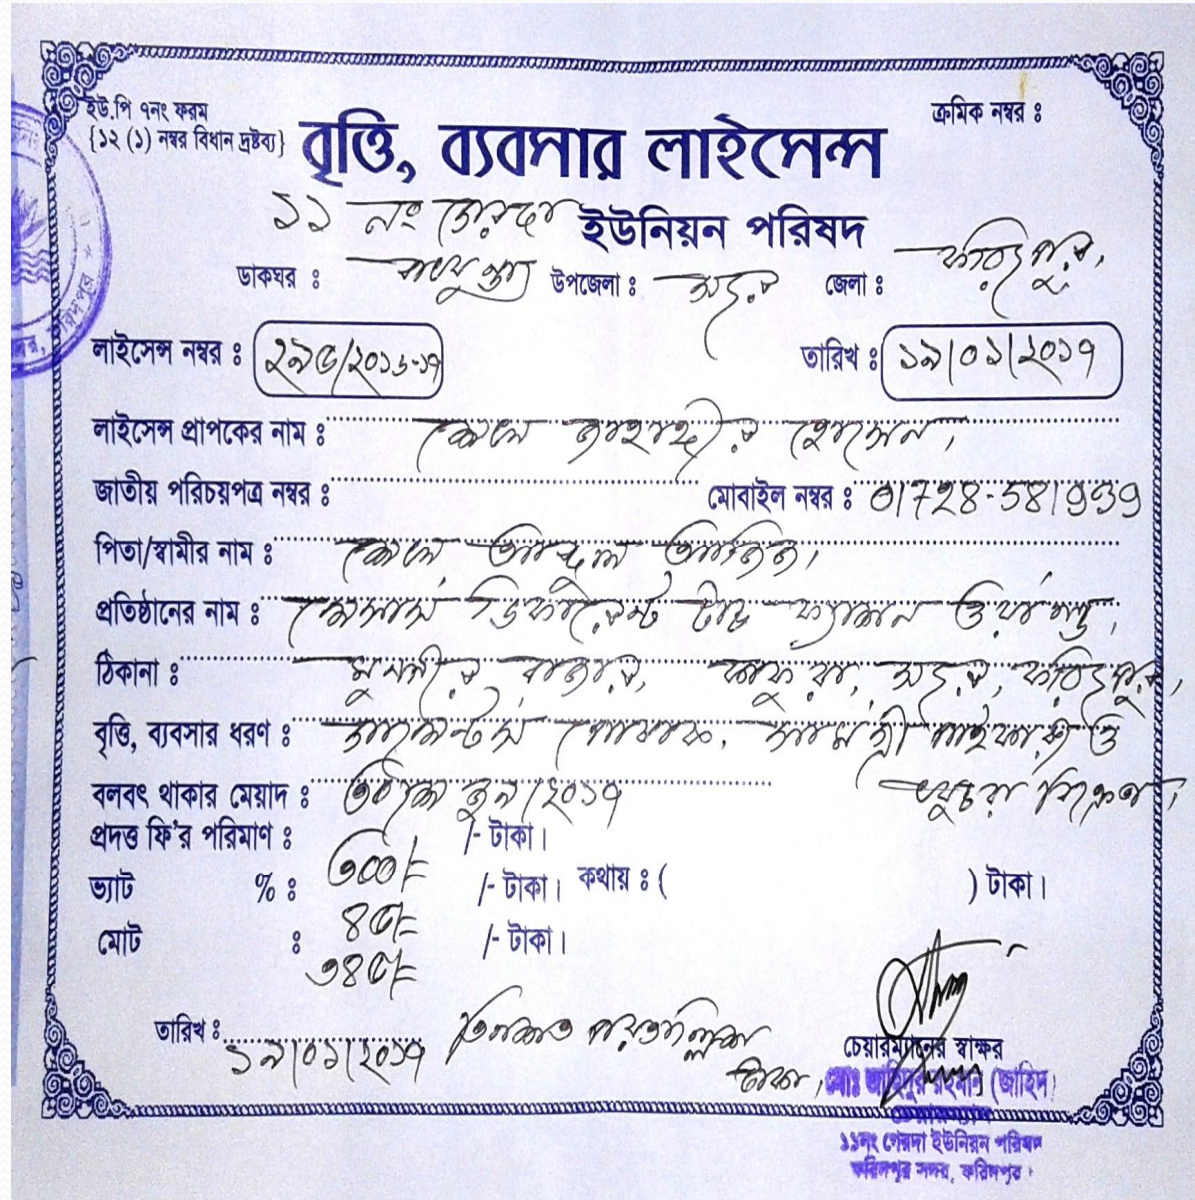 ইউ.পি ৭নং ফরম
{১২ (১) নম্বর বিধান দ্রষ্টব্য}
ক্রমিক নম্বর ঃ
বৃত্তি, ব্যবসার লাইসেন্স
১১ নং গেরদা ইউনিয়ন পরিষদ
ডাকঘর ঃ উপজেলা ঃ সদর জেলা ঃ ফরিদপুর,
লাইসেন্স নম্বর ঃ ২৯৫/২০১৬-১৭ তারিখ ঃ ১৯/০১/২০১৭
লাইসেন্স প্রাপকের নাম ঃ মোঃ জাহাঙ্গীর হোসেন,
জাতীয় পরিচয়পত্র নম্বর ঃ মোবাইল নম্বর ঃ 01728-581939
পিতা/স্বামীর নাম ঃ মোঃ আব্দুল আজিজ,
প্রতিষ্ঠানের নাম ঃ মেসার্স ডিফারেন্ট টাচ ফ্যাশন ওয়ার্ল্ড,
ঠিকানা ঃ মুন্সীর বাজার, কাফুরা, সদর, ফরিদপুর,
বৃত্তি, ব্যবসার ধরণ ঃ গার্মেন্টস পোষাক, সামগ্রী পাইকারী ও
খুচরা বিক্রেতা,
বলবৎ থাকার মেয়াদ ঃ ৩০শে জুন/২০১৭
প্রদত্ত ফি'র পরিমাণ ঃ ৩০০/= /- টাকা।
ভ্যাট % ঃ ৪৫/= /- টাকা। কথায় ঃ ( ) টাকা।
মোট ঃ ৩৪৫/= /- টাকা।
তারিখ ঃ ১৯/০১/২০১৭ তিনশত পয়তাল্লিশ
টাকা,
চেয়ারম্যানের স্বাক্ষর
মোঃ জাহিদুর রহমান (জাহিদ)
চেয়ারম্যান
১১নং গেরদা ইউনিয়ন পরিষদ
ফরিদপুর সদর, ফরিদপুর।